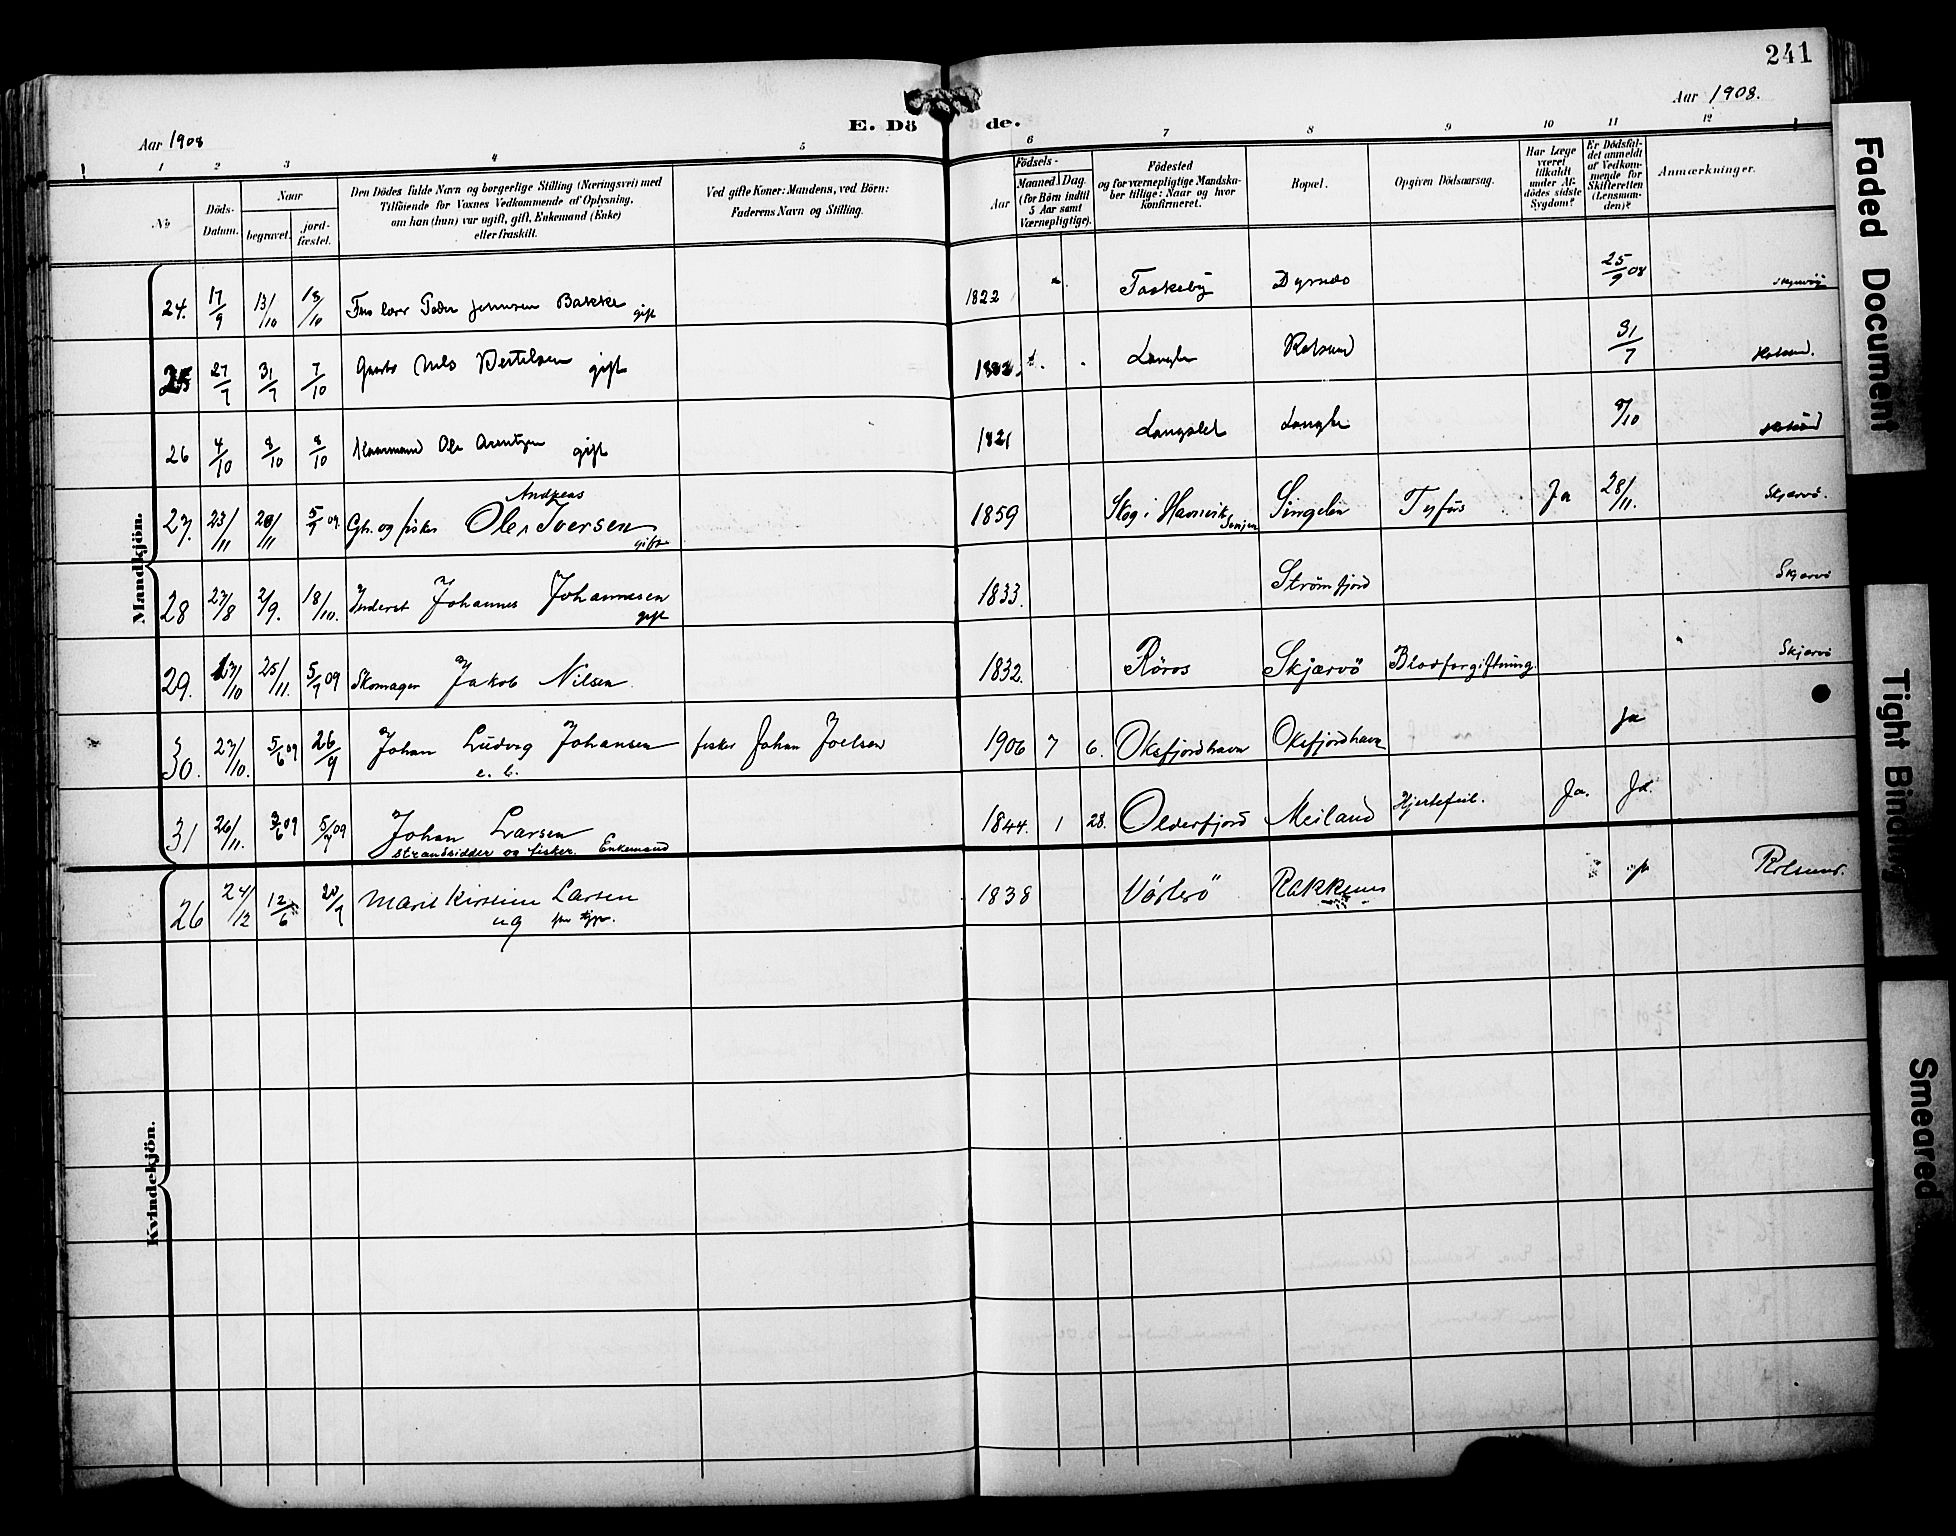 241
Aar 1908
E. Dö de.
Aar 1908.
1 2 3 4 5 6 7 8 9 10 11 12
No
Döds-Datum.
Naar
begravet.
jord-fæstet.
Den Dödes fulde Navn og borgerlige Stilling (Næringsvei) med
Tilföiende for Voxnes Vedkommende af Oplysning,
om han (hun) var ugift, gift, Enkemand (Enke)
eller fraskilt.
Ved gifte Koner: Mandens, ved Börn:
Faderens Navn og Stilling.
Födsels-
Aar
Maaned. Dag.
(for Börn indtil
5 Aar samt
Værnepligtige).
Födested
og for værnepligtige Mandska-
ber tillige: Naar og hvor
konfirmeret.
Bopæl.
Opgiven Dödsaarsag.
Har Læge
været
tilkaldt
under Af-
dödes sidste
Sygdom?
Er Dödsfal-
det anmeldt
af Vedkom-
mende for
Skifteretten
(Lensman-
den)?
Anmærkninger.
Mandkjön.
24. 17/9 13/10 13/10 Peder Jensen Bakke gift 1822 Taskeby Dyrnæs 25/9 08 Skjervöy
25 27/7 31/7 7/10 Nils Bertelsen gift Langbu Rotsund 31/7 Rotsund.
26 4/10 8/10 8/10 Ole Arntzen gift 1821 Langslet Langbu 8/10 Rotsund
27. 23/11 28/11 5/7 09 Gb. og fisker Ole Andreas Iversen gift 1859 Skog i Havnvik Senjen Singelen Tyfus Ja 28/11. Skjærvö.
28 27/8 2/9. 18/10. Inderst Johannes Johannesen gift 1833. Strömfjord Skjærvö
29. 17/10 25/11. 5/7 09 Skomager Jakob Nilsen 1832. Röros Skjærvö Blodforgiftning. Skjærvö
30. 27/10. 5/6 09 26/9 Johan Ludvig Johansen fisker Johan Joelsen 1906 7 6. Oksfjordhavn Oksfjordhavn Ja
e. b.
31 26/11. 3/6 09 5/7 09 Johan Larsen 1844. 1 28. Olderfjord Meiland Hjertefeil. Ja. Ja.
strandsidder og fisker. Enkemand
Kvindekjön.
26 24/12 12/6 20/7 Marit Kirstine Larsen 1838 Vorterö Rakkenes Rotsund.
ug
Faded Document
Tight Binding
Smeared